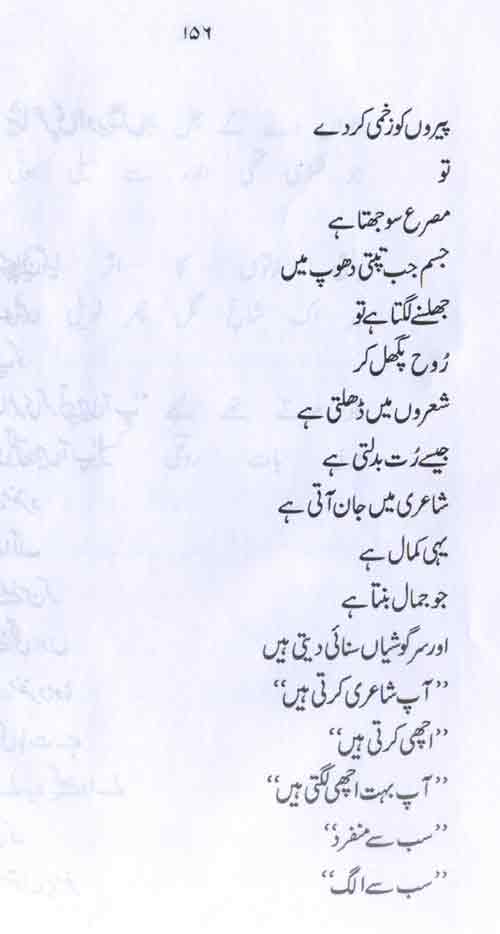 ۱۵۶
پیروں کو زخمی کر دے
تو
مصرع سوجھتا ہے
جسم جب تپتی دھوپ میں
جھلنے لگتا ہے تو
رُوح پگھل کر
شعروں میں ڈھلتی ہے
جیسے رُت بدلتی ہے
شاعری میں جان آتی ہے
یہی کمال ہے
جو جمال بنتا ہے
اور سرگوشیاں سنائی دیتی ہیں
”آپ شاعری کرتی ہیں“
”اچھی کرتی ہیں“
”آپ بہت اچھی لگتی ہیں“
”سب سے منفرد“
”سب سے الگ“